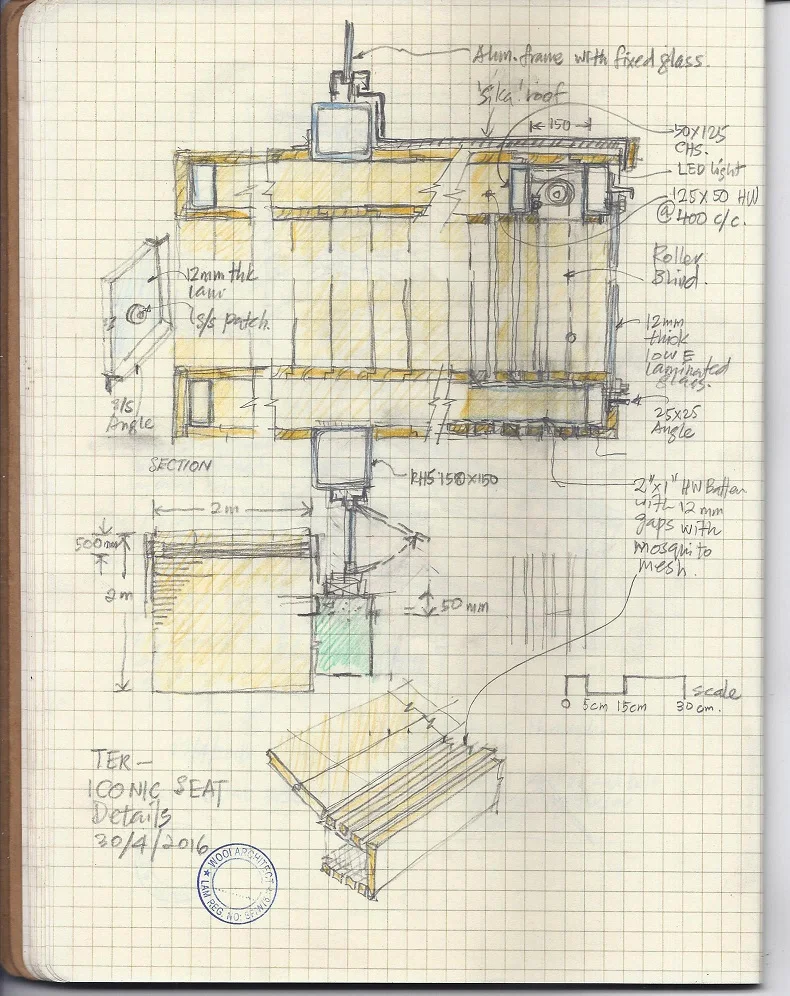 Alum. frame with fixed glass.
'Sika' roof
150
50X125
CHS.
LED light
125X50 HW
@ 400 c/c.
Roller
Blind.
12mm
thick
low E
laminated
glass.
25x25
Angle
12mm thk
lam
s/s patch.
s/s
Angle
SECTION
RHS 150X150
2"x1" HW Batten
with 12 mm
gaps with
mosquito
mesh.
2m
500mm
2m
50 mm
scale
0 5cm 15cm 30cm.
TER —
ICONIC SEAT
Details
30/4/2016
WOOI ARCHITECT
LAM REG. NO: